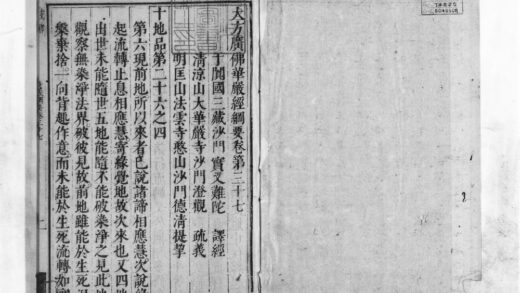 大方廣佛華嚴經綱要卷第三十七
于闐國三藏沙門實叉難陀 譯經
清涼山大華嚴寺沙門澄觀 疏義
明匡山法雲寺憨山沙門德清提挈
十地品第二十六之四
第六現前地所以來者已說諸諦相應慧次說緣
起流轉止息相應慧寄緣覺地故次來也又四地
出世未能隨世五地能隨不能破染淨之見此地
觀察無染淨法界破彼見故前地雖能於生死涅
槃棄捨一向背趣作意而未能於生死流轉如實